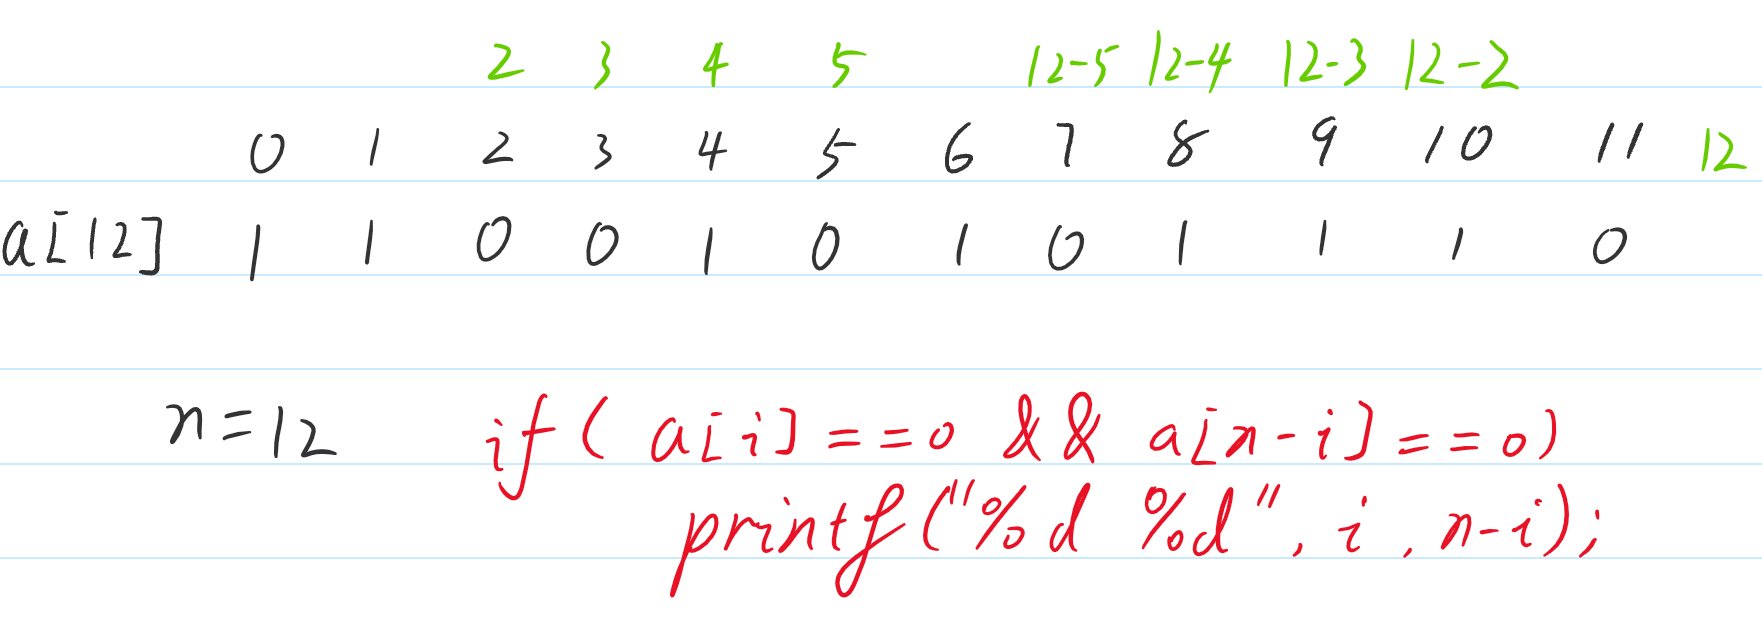 2 3 4 5 12-5 12-4 12-3 12-2
0 1 2 3 4 5 6 7 8 9 10 11 12
a[12] 1 1 0 0 1 0 1 0 1 1 1 0
n=12 if( a[i]==0 && a[n-i]==0)
printf("%d %d", i, n-i);